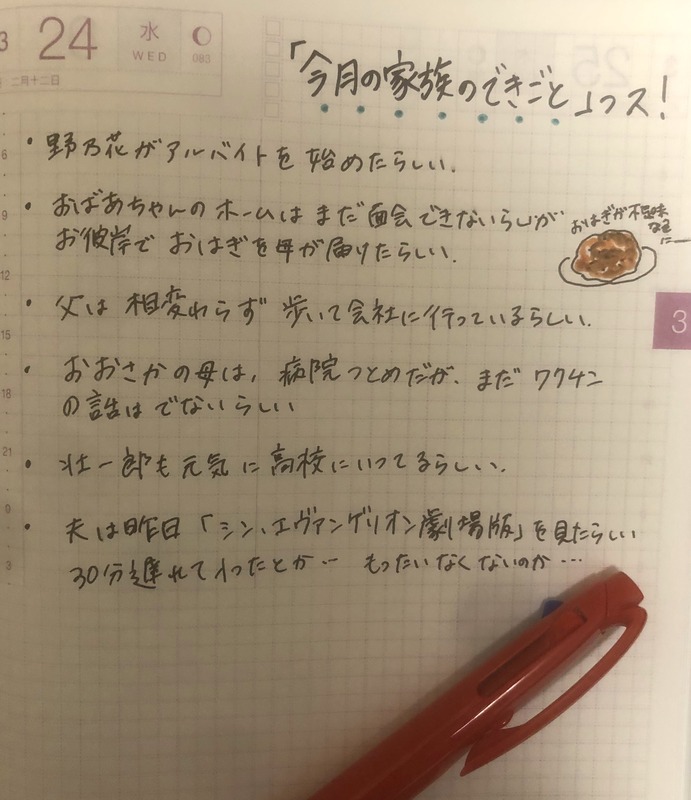 3 24 水
WED 083
二月十二日
「今月の家族のできごと」っス!
6
・野乃花がアルバイトを始めたらしい.
9
・おばあちゃんのホームはまだ面会できないらしいが
お彼岸でおはぎを母が届けたらしい.
おはぎが不気味
な色
に
12
・父は相変わらず歩いて会社に行っているらしい.
3
15
・おおさかの母は,病院つとめだが、まだワクチン
18
の話はでないらしい
21
・壮一郎も元気に高校にいってるらしい.
9
・夫は昨日「シン、エヴァンゲリオン劇場版」を見たらしい
3
30分遅れて入ったとか… もったいなくないのか…